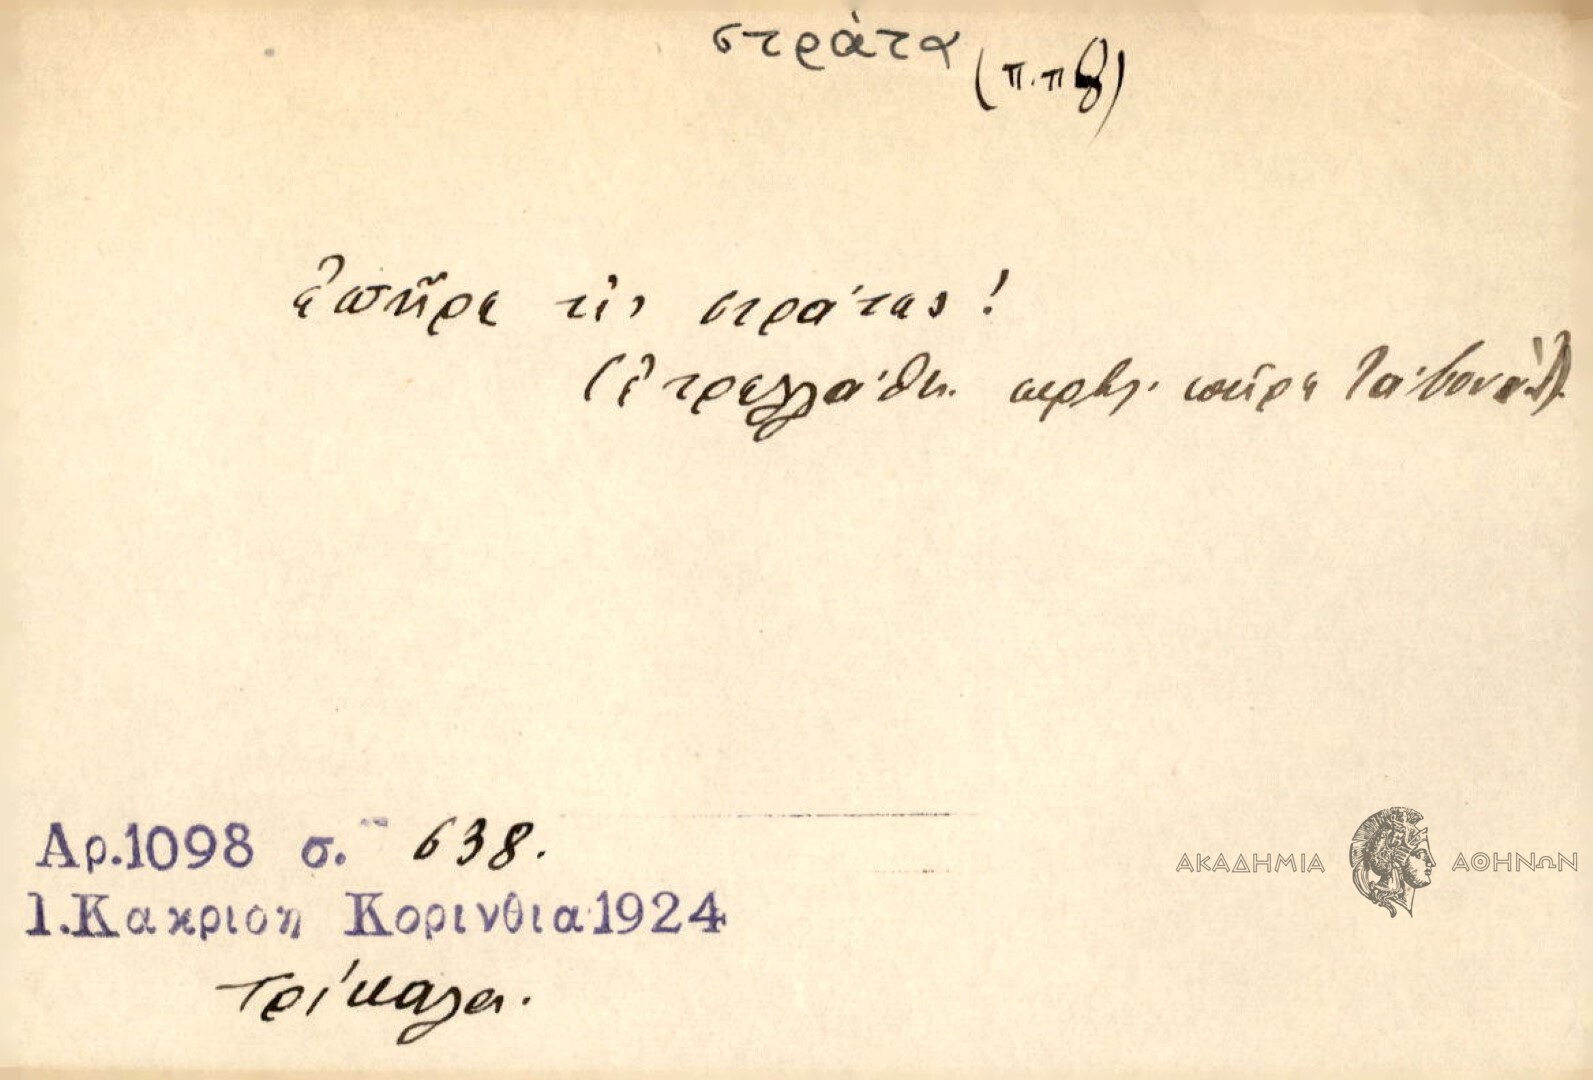 στράτα
(π.π8)
ἐπῆρε τὶς στράτες!
(ἐτρελλάθη. πῆρε τὰ βουνά).
Αρ.1098 σ. 638.
Ι.Κακριση Κορινθια1924
Τρίκαλα.
ΑΚΑΔΗΜΙΑ ΑΘΗΝΩΝ